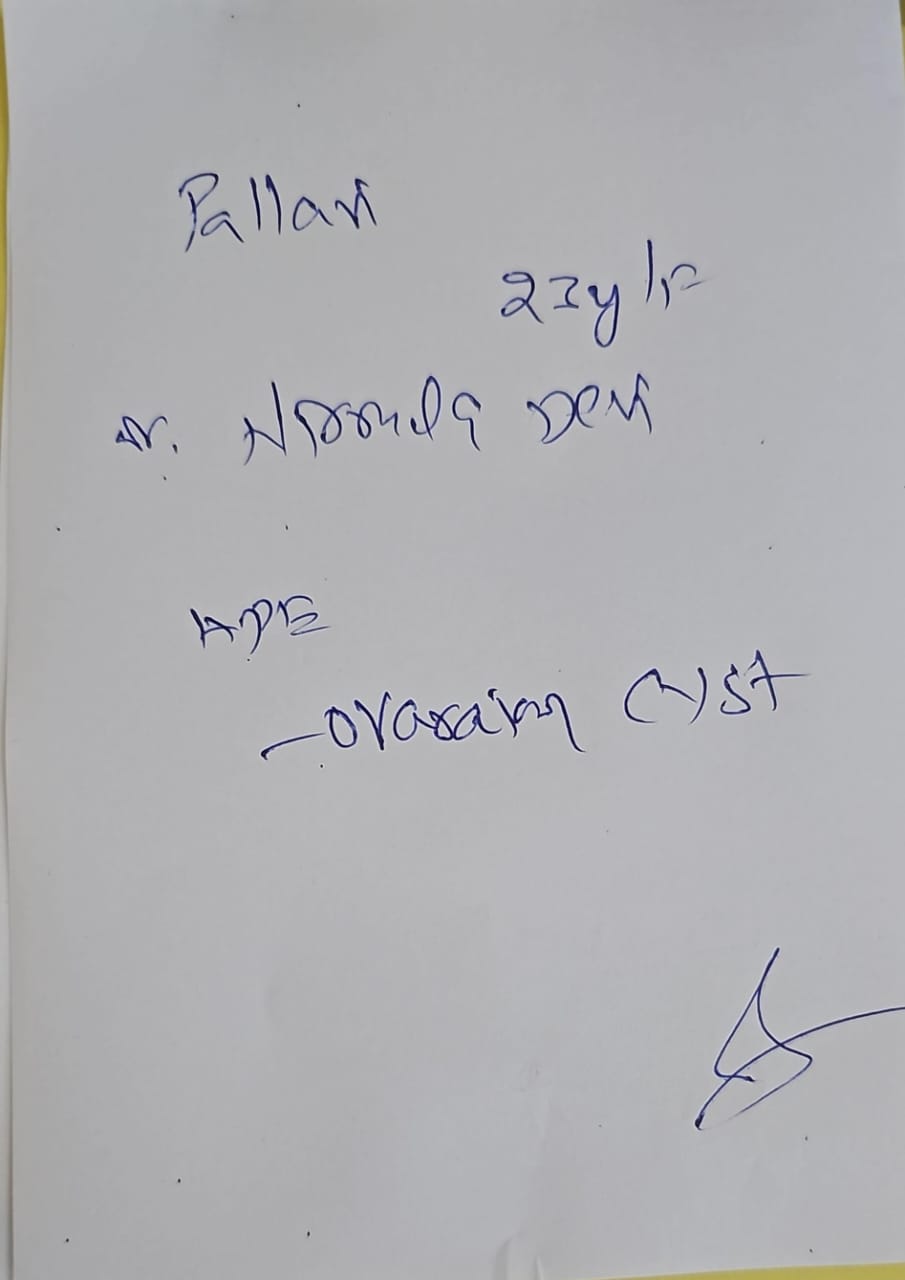 Pallavi
23y/F
Dr. Nirmala Devi
HPE
- Ovarain Cyst